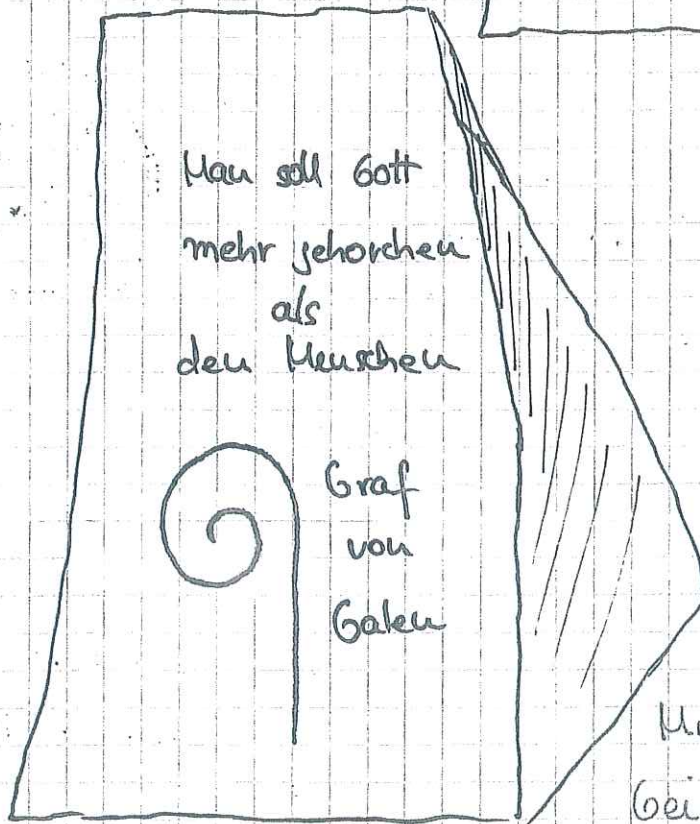 Man soll Gott
mehr gehorchen
als
den Menschen
Graf
von
Galen